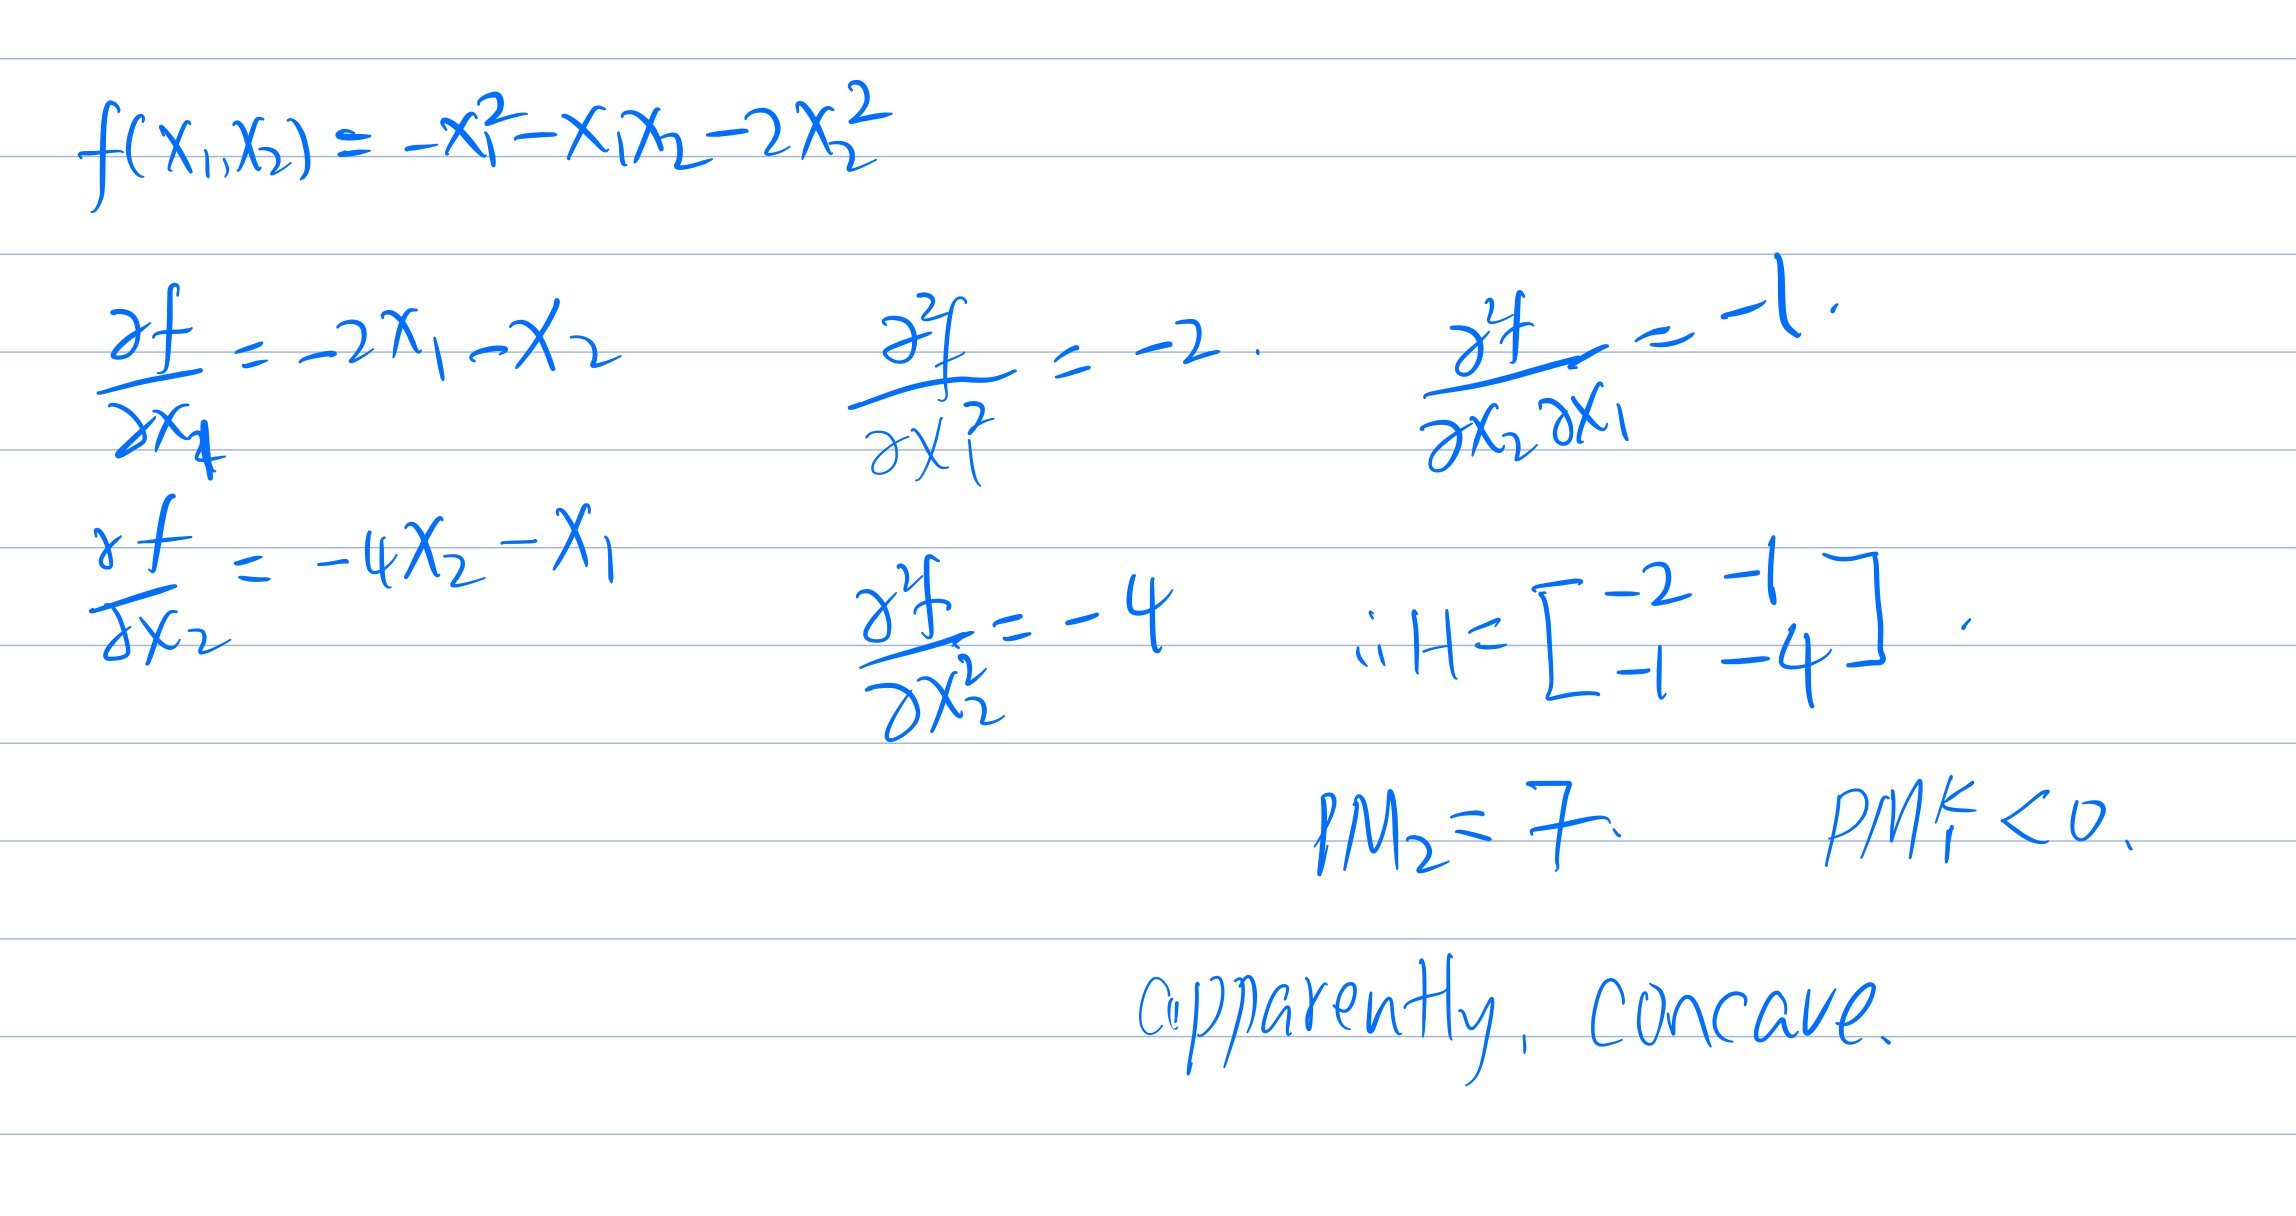 f(x₁,x₂) = -x₁² - x₁x₂ - 2x₂²
∂f/∂x₁ = -2x₁ - x₂   ∂²f/∂x₁² = -2.   ∂²f/∂x₂∂x₁ = -1.
∂f/∂x₂ = -4x₂ - x₁   ∂²f/∂x₂² = -4   ∴ H = [-2 -1; -1 -4].
PM₂ = 7.   <0.
apparently, concave.